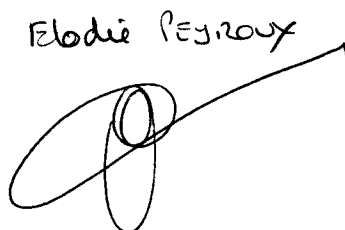 Elodie PEYROUX